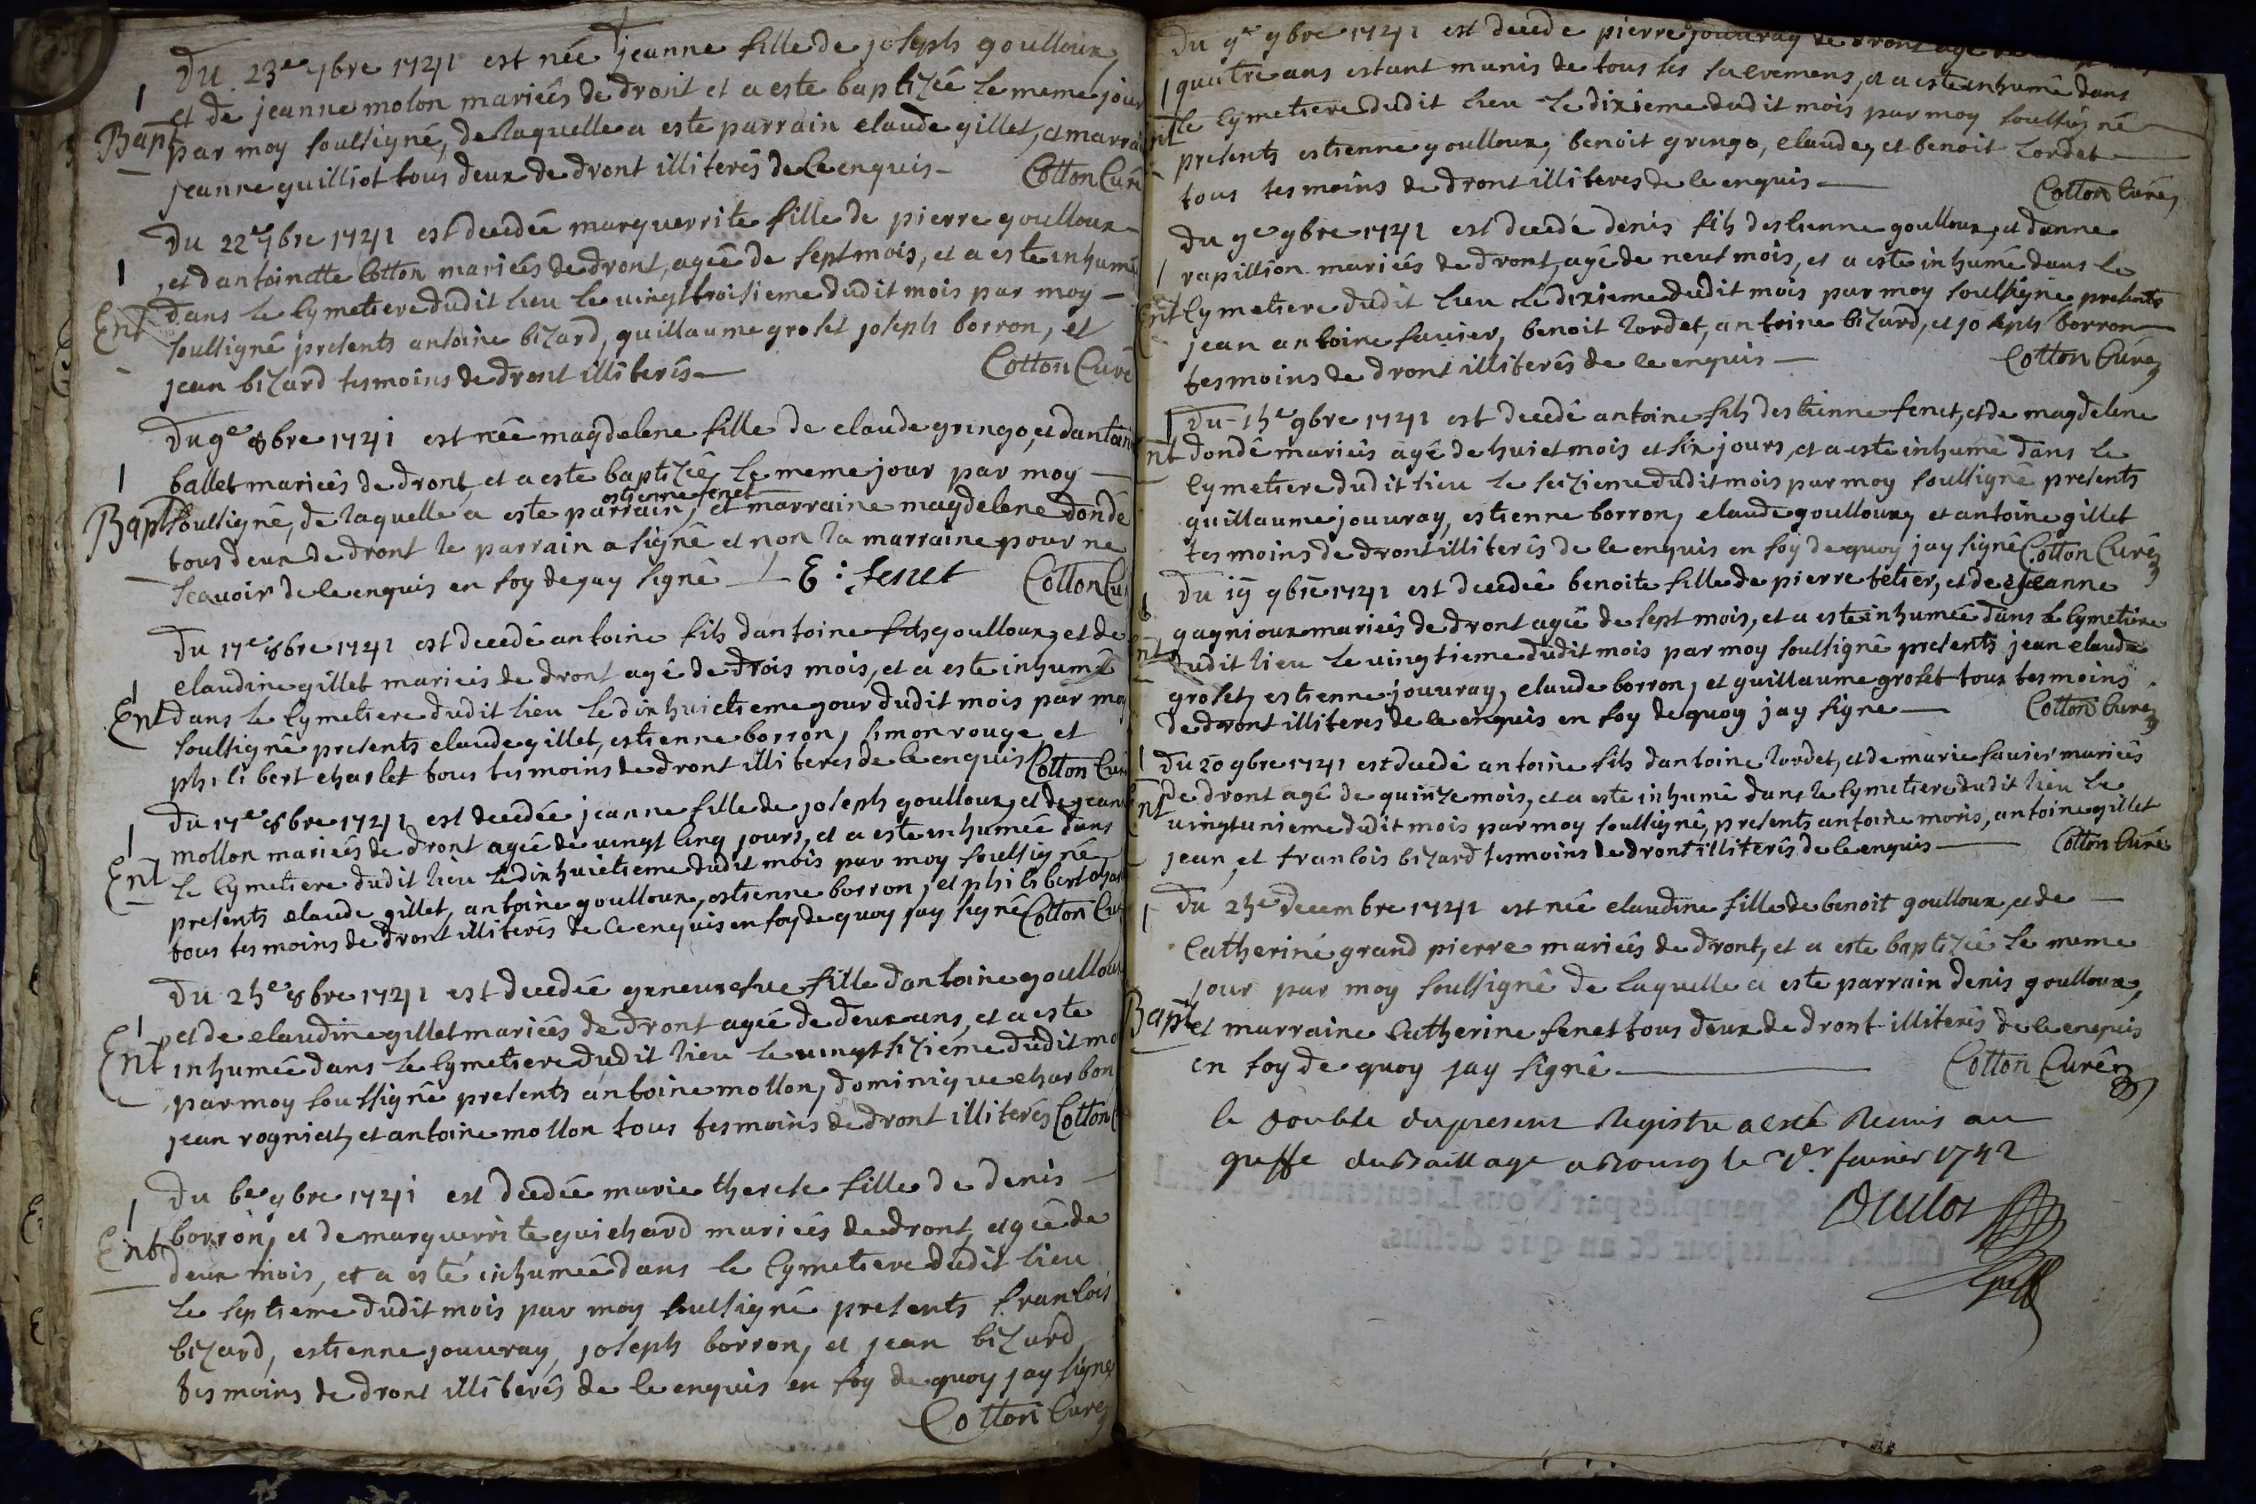 Du 23e 7bre 1741 est née jeanne fille de joseph goulloux
1
et de jeanne molon mariées de dront et a este baptizée le meme jour
Bapt
par moy soussigné, de laquelle a este parrain claude gillet, et marrai
jeanne guilliot tous deux de dront illiterés de ce enquis - Cotton Curé
Du 22 7bre 1741 est decedée marguerrite fille de pierre goulloux
1
et dantoinette Cotton mariées de dront, agée de sept mois, et a este inhumé
Ent
dans le Cymetiere dudit lieu le vingt troisieme dudit mois par moy -
soussigné presents antoine bizard, guillaume groset joseph borron, et
jean bizard tesmoins de dront illiterés - Cotton Curé
Du 9e 8bre 1741 est née magdelene fille de claude gringo, et dantoin
1
ballet mariées de dront, et a este baptizée le meme jour par moy -
estienne fenet
Bapt
soussigné, de laquelle a este parrain, et marraine magdelene dondé
tous deux de dront le parrain a signé et non la marraine pour ne
scavoir de ce enquis en foy de quoy signé - E : fenet Cotton Cu
Du 17e 8bre 1741 est decedé antoine fils dantoine fils goulloux, et de
1
claudine gillet mariées de dront agé de drois mois, et a este inhumé
Ent
dans le Cymetiere dudit lieu le dix huictieme jour dudit mois par moy
soussigné presents claude gillet, estienne borron, simon rouge et
philibert charlet tous tesmoins de dront illiteres de ce enquis Cotton Cur
Du 17e 8bre 1741 est decedée jeanne fille de joseph goulloux, et de jean
1
mollon mariées de dront agée de vingt cinq jours, et a este inhumée dans
Ent
le Cymetiere dudit lieu le dix huictieme dudit mois par moy soussigné
presents claude gillet, antoine goulloux, estienne borron, et philibert char
tous tesmoins de dront illiterés de ce enquis en foy de quoy jay signé Cotton Cur
Du 25e 8bre 1741 est decedée genevrefue fille dantoine goulloux
1
et de claudine gillet mariées de dront agée de deux ans, et a este
Ent
inhumée dans le Cymetiere dudit lieu le vingt sizieme dudit mo
par moy soussigné presents antoine mollon, dominique charbon
jean rogniat, et antoine mollon tous tesmoins de dront illiterés Cotton C
Du 6e 9bre 1741 est decedée marie therese fille de denis -
1
borron, et de marguerrite guichard mariées de dront, agée de
Ent
deux mois, et a esté inhumée dans le Cymetiere dudit lieu
le septieme dudit mois par moy soussigné presents francois
bizard, estienne jouvray, joseph borron, et jean bizard
tesmoins de dront illiterés de ce enquis en foy de quoy jay signé
Cotton Curé
Du 9e 9bre 1741 est decedé pierre jouvray de dront agé
1
quatre ans estant munis de tous ses sacremens, et a este inhumé dans
Ent
le Cymetiere dudit lieu le dixieme dudit mois par moy soussigné
presents estienne goulloux, benoit gringo, claude, et benoit Lordet
tous tesmoins de dront illiteres de ce enquis - Cotton Curé
Du 9e 9bre 1741 est decedé denis fils destienne goulloux, et danne
1
rapillion mariées de dront, agé de neuf mois, et a este inhumé dans le
Ent
Cymetiere dudit lieu le dixieme dudit mois par moy soussigné presents
jean antoine favier, benoit Lordet, antoine bizard, et joseph borron
tesmoins de dront illiterés de ce enquis - Cotton Curé
1
Du 15e 9bre 1741 est decedé antoine fils destienne fenet, et de magdelene
Ent
dondé mariés agé de huict mois et six jours, et a este inhumé dans le
Cymetiere dudit lieu le seizieme dudit mois par moy soussigné presents
guillaume jouvray, estienne borron, claude goulloux, et antoine gillet
tesmoins de dront illiterés de ce enquis en foy de quoy jay signé Cotton Curé
Du 19 9bre 1741 est decedée benoite fille de pierre tetier, et de jeanne
1
gagnioux mariés de dront agée de sept mois, et a este inhumée dans le Cymetiere
Ent
dudit lieu le vingtieme dudit mois par moy soussigné presents jean claude
groset, estienne jouvray, claude borron, et guillaume groset tous tesmoins
de dront illiteres de ce enquis en foy de quoy jay signé - Cotton Curé
1
Du 20 9bre 1741 est decedé antoine fils dantoine Lordet, et de marie favier mariés
Ent
de dront agé de quinze mois, et a este inhumé dans le Cymetiere dudit lieu le
vingtunieme dudit mois par moy soussigné presents antoine moris, antoine gillet
jean, et francois bizard tesmoins de dront illiterés de ce enquis - Cotton Curé
1
Du 25e decembre 1741 est née claudine fille de benoit goulloux, et de -
Catherine grand pierre mariées de dront, et a este baptizée le meme
jour par moy soussigné de laquelle a este parrain denis goulloux,
Bapt
et marraine Catherine fenet tous deux de dront illiterés de ce enquis
en foy de quoy jay signé - Cotton Curé
le double du present Registre a esté Remis au
greffe du Baillage a Bourg le fevrier 1742